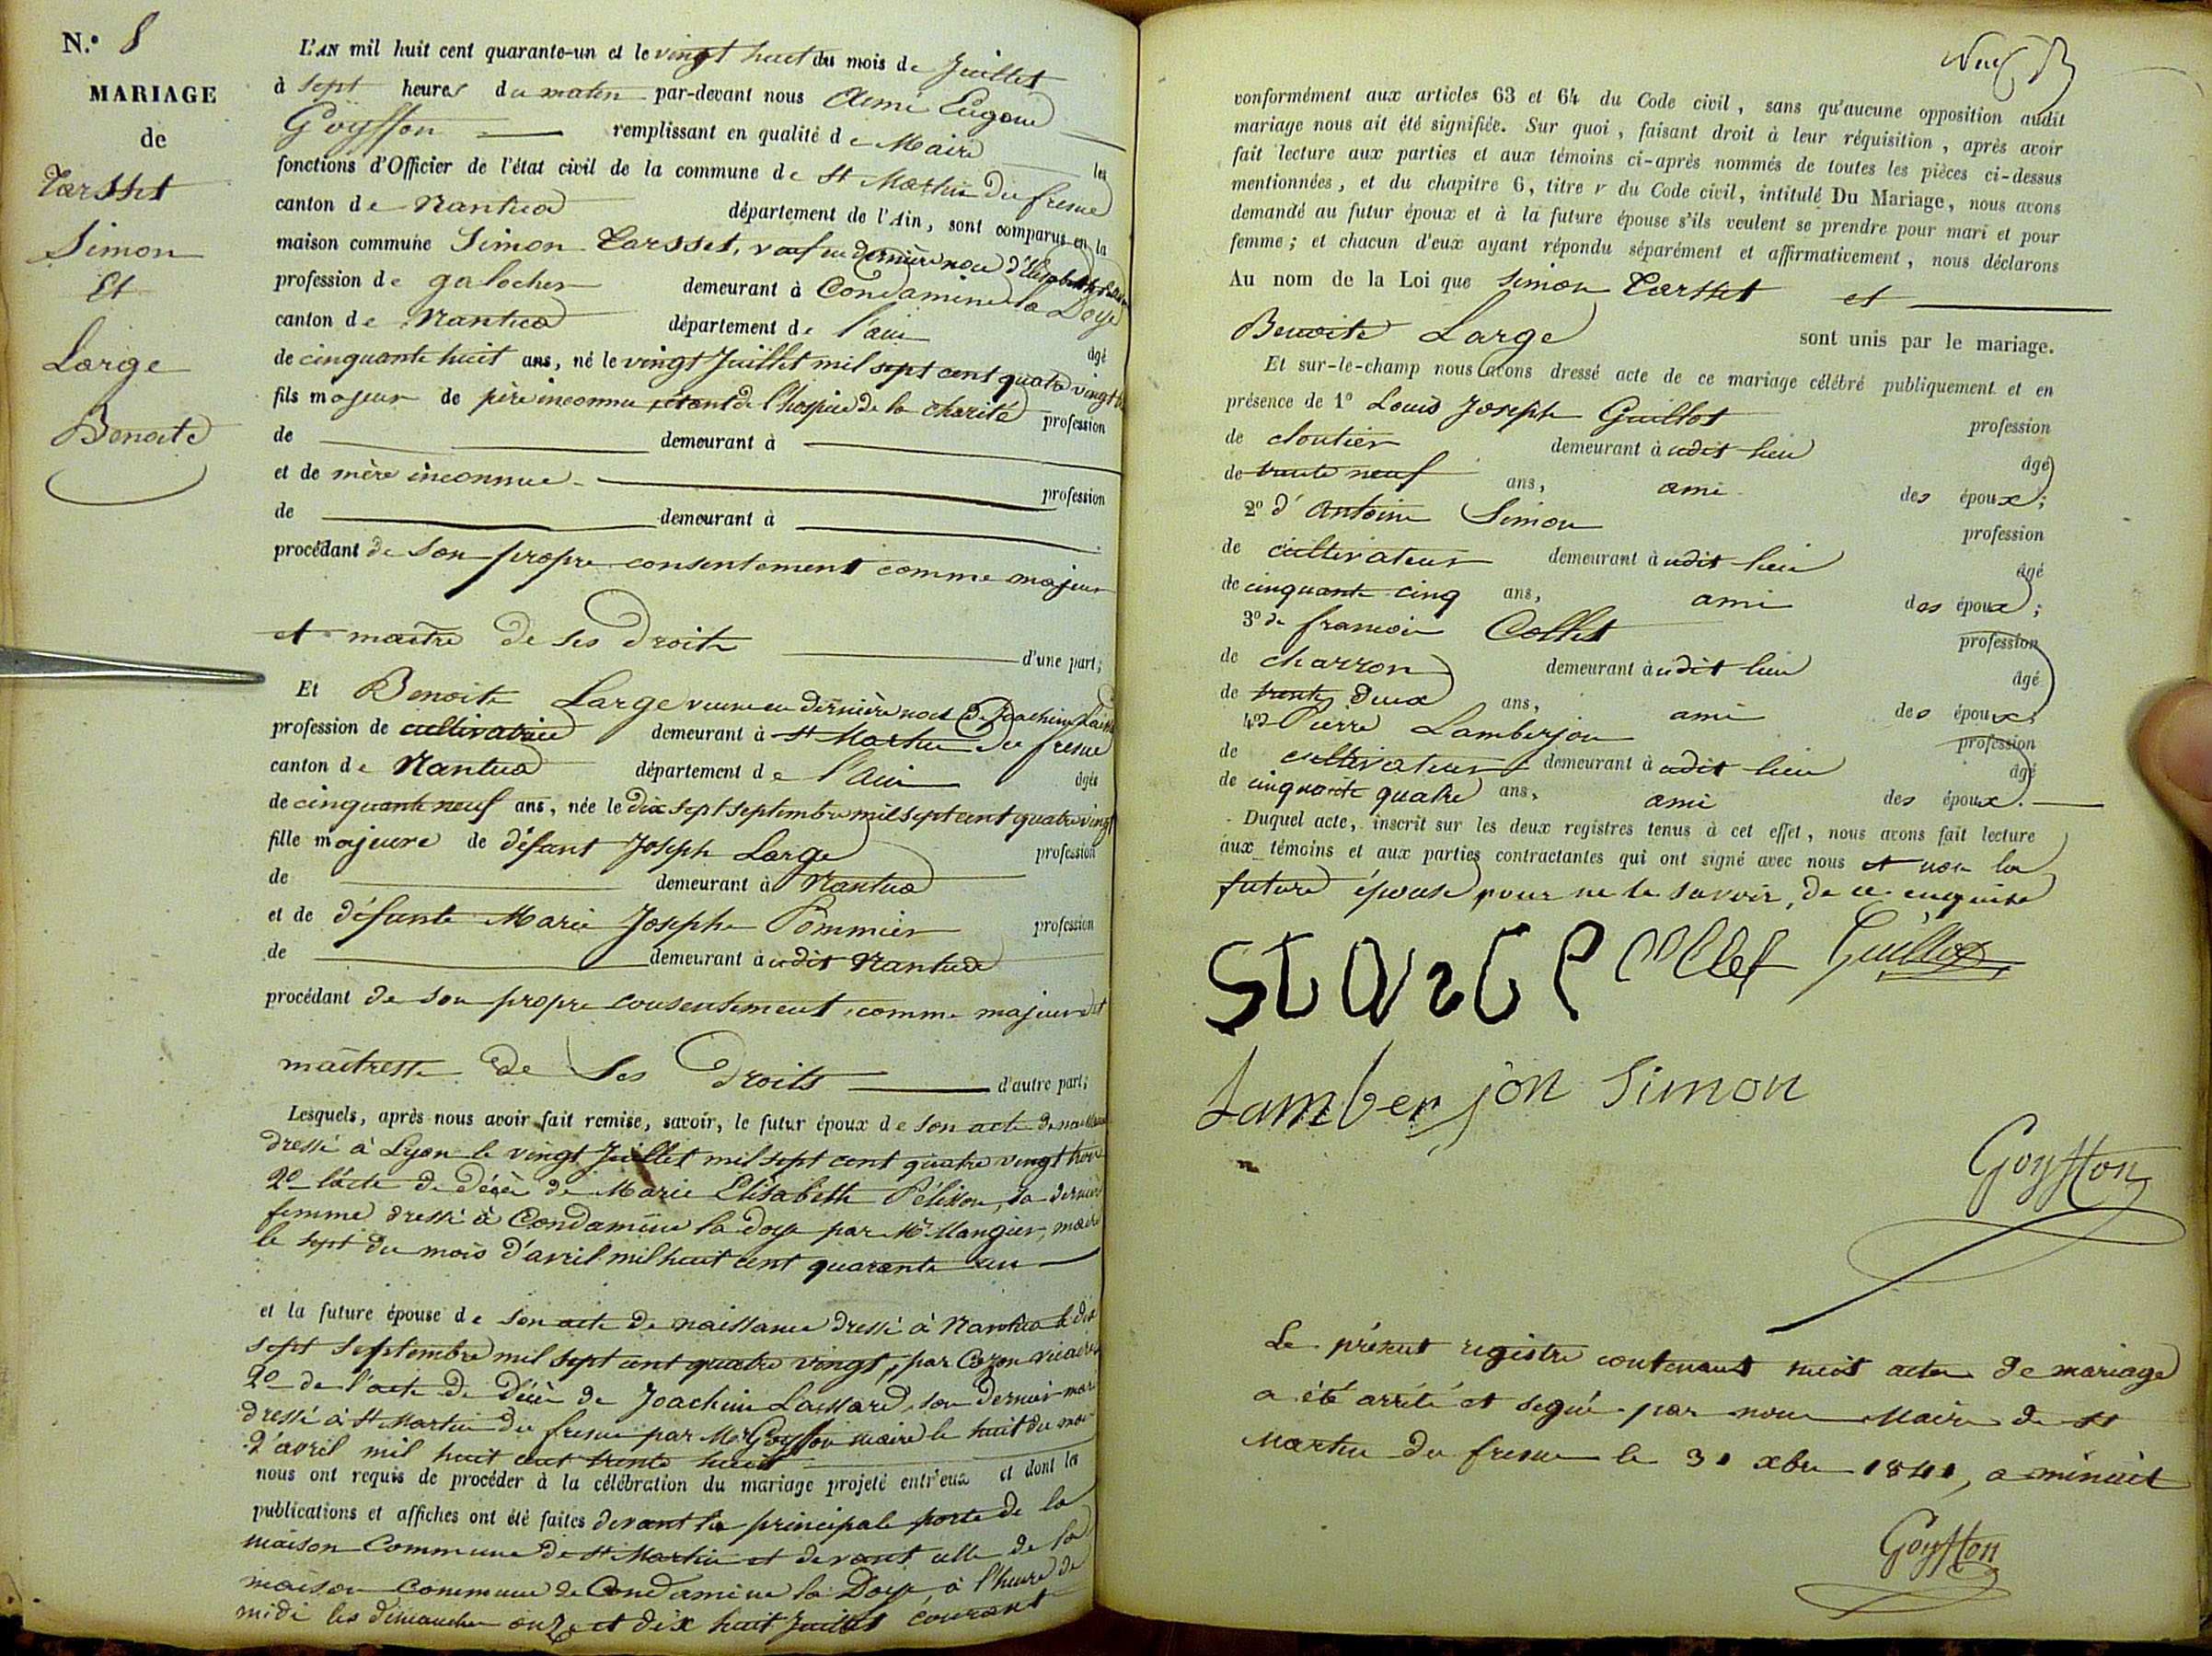 N.° 8
MARIAGE
de
Tarsset
Simon
Et
Large
Benoite
L'AN mil huit cent quarante-un et le vingt huit du mois de Juillet
à sept heures du matin par-devant nous Aimé Eugène
Goyffon remplissant en qualité de Maire les
fonctions d'Officier de l'état civil de la commune de St Martin du fresne
canton de Nantua département de l'Ain, sont comparus en la
maison commune Simon Tarsset, veuf en dernière noce d'Elisabeth
profession de galocher demeurant à Condamine la Doye
canton de Nantua département de l'ain âgé
de cinquante huit ans, né le vingt Juillet mil sept cent quatre vingt
fils majeur de père inconnu, étant de l'hospice de la charité profession
de demeurant à
et de mère inconnue profession
de demeurant à
procédant de son propre consentement comme majeur
et maître de ses droits d'une part;
Et Benoite Large veuve en dernière noce de Joachim
profession de cultivatrice demeurant à St Martin du fresne
canton de Nantua département de l'ain âgée
de cinquante neuf ans, née le dix sept septembre mil sept cent quatre vingt
fille majeure de défunt Joseph Large profession
de demeurant à Nantua
et de défunte Marie Josephe Pommier profession
de demeurant à udit Nantua
procédant de son propre consentement, comme majeure et
maîtresse de ses droits d'autre part;
Lesquels, après nous avoir fait remise, savoir, le futur époux de son acte de naissance
dressé à Lyon le vingt Juillet mil sept cent quatre vingt trois
2° l'acte de décès de Marie Elisabeth Pélisson, sa dernière
femme dressé à Condamine la doye par Mr Mangier, maire
le sept du mois d'avril mil huit cent quarante un
et la future épouse de son acte de naissance dressé à Nantua le dix
sept septembre mil sept cent quatre vingt, par Cozon vicaire
2° de l'acte de décès de Joachim Lassard, son dernier mari
dressé à St Martin du fresne par Mr Goyffon maire le huit du mois
d'avril mil huit cent trente huit
nous ont requis de procéder à la célébration du mariage projeté entr'eux et dont les
publications et affiches ont été faites devant la principale porte de la
maison Commune de St Martin et devant celle de la
maison commune de Condamine la Doye à l'heure de
midi les dimanches onze et dix huit Juillet courant
conformément aux articles 63 et 64 du Code civil, sans qu'aucune opposition audit
mariage nous ait été signifiée. Sur quoi, faisant droit à leur réquisition, après avoir
fait lecture aux parties et aux témoins ci-après nommés de toutes les pièces ci-dessus
mentionnées, et du chapitre 6, titre v du Code civil, intitulé Du Mariage, nous avons
demandé au futur époux et à la future épouse s'ils veulent se prendre pour mari et pour
femme; et chacun d'eux ayant répondu séparément et affirmativement, nous déclarons
Au nom de la Loi que Simon Tarsset et
Benoite Large sont unis par le mariage.
Et sur-le-champ nous avons dressé acte de ce mariage célébré publiquement et en
présence de 1° Louis Joseph Guillot profession
de cloutier demeurant à udit lieu âgé
de trente neuf ans, ami des époux;
2° d'Antoine Simon profession
de cultivateur demeurant à udit lieu âgé
de cinquante cinq ans, ami des époux;
3° de françois Collet profession
de charron demeurant à udit lieu âgé
de trente deux ans, ami des époux;
4° Pierre Lamberjon profession
de cultivateur demeurant à udit lieu âgé
de cinquante quatre ans, ami des époux.
Duquel acte, inscrit sur les deux registres tenus à cet effet, nous avons fait lecture
aux témoins et aux parties contractantes qui ont signé avec nous et non la
future épouse pour ne le savoir, de ce enquise
Collet Guillot
Lamberjon Simon
Goyffon
Le présent registre contenant huit actes de mariage
a été arrêté et signé par nous Maire de St
Martin du fresne le 31 xbre 1841, a minuit
Goyffon